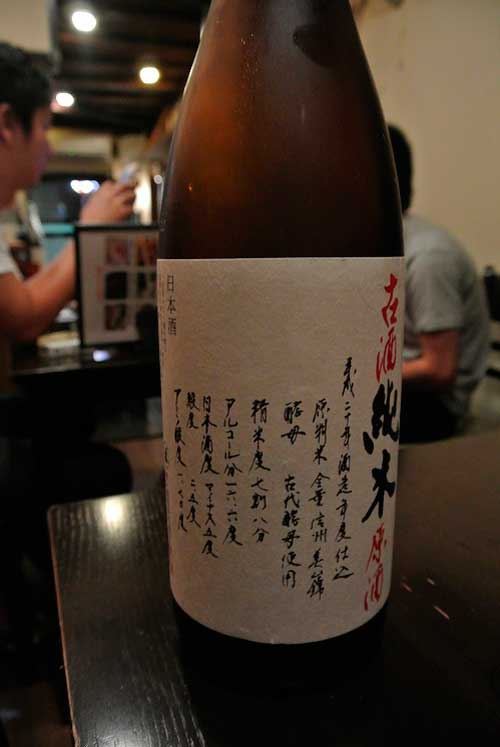 古酒純米原酒
平成二十年酒造年度仕込
原料米 全量信州美山錦
酵母 古代酵母使用
精米度七割八分
アルコール分一六・六度
日本酒度 マイナス五度
酸度 二・五度
日本酒